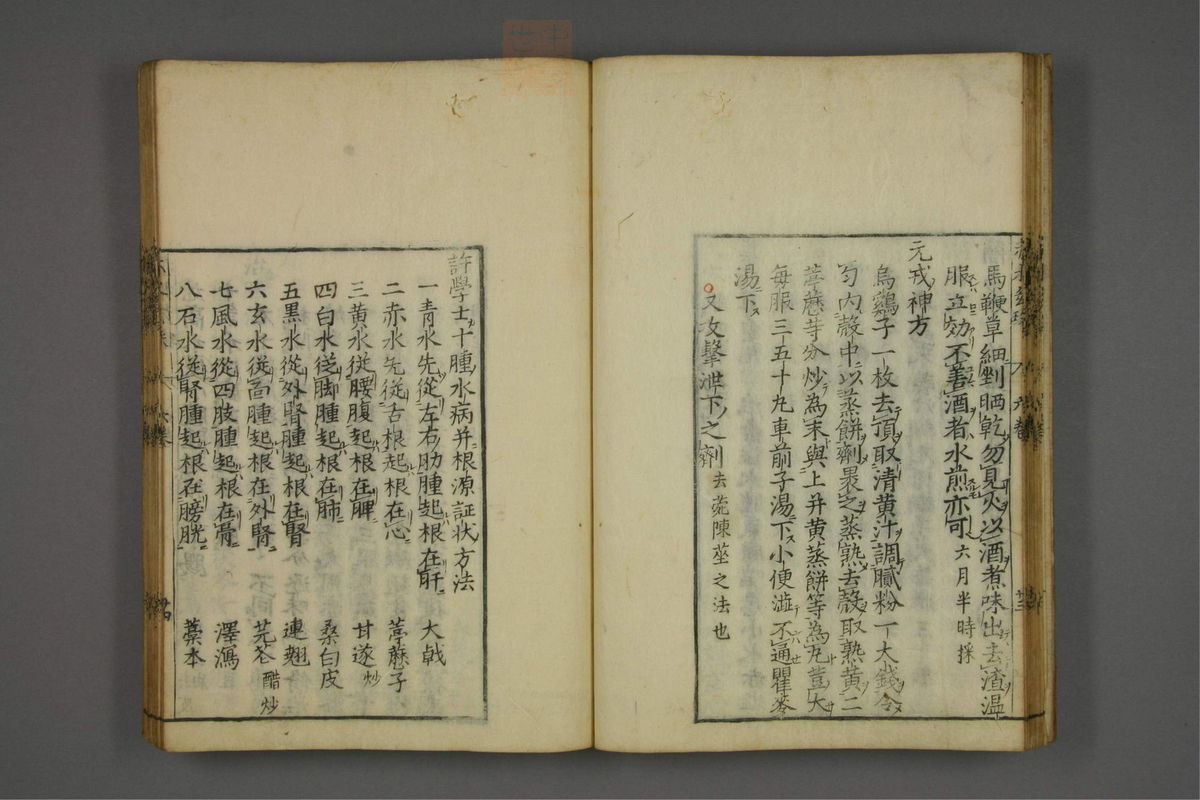 馬鞭草細剉晒乾勿見火以酒煮味出去渣温
服立効不善酒者水煎亦可六月半時採
元戎神方
烏鷄子一枚去頂取清黄汁調膩粉一大錢令
匀内殻中以蒸餅劑裹之蒸熟去殻取熟黄二
葶藶等分炒為末與上并黄蒸餅等為丸荳大
毎服三五十丸車前子湯下小便澁不通瞿麥
湯下
又攻撃泄下之劑去菀陳莝之法也
許學士十腫水病并根源証状方法
一青水先從左右肋腫起根在肝 大戟
二赤水先從舌根起根在心 葶藶子
三黄水從腰腹起根在脾 甘遂炒
四白水從脚腫起根在肺 桑白皮
五黒水從外腎腫起根在腎 連翹
六玄水從面腫起根在外腎 芫花醋炒
七風水從四肢腫起根在骨 澤瀉
八石水從腎腫起根在膀胱 藁本